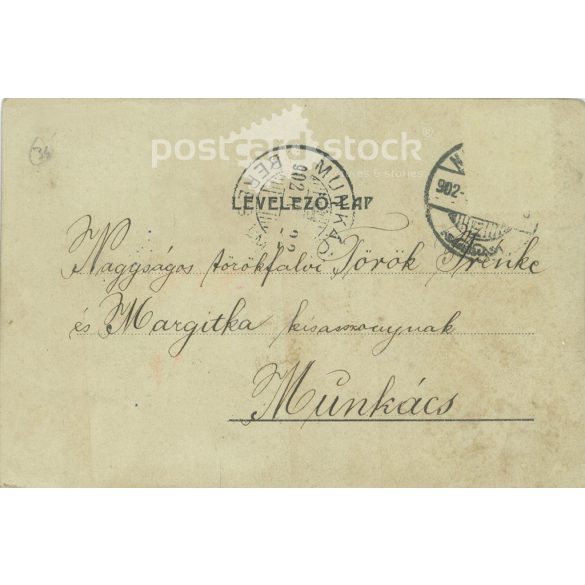 34
postcardstock
LEVELEZŐ-LAP
MUNKÁCS
BEREG
902
902
Nagyságos törökfalvi Török Irénke
és Margitka kisasszonynak
Munkács